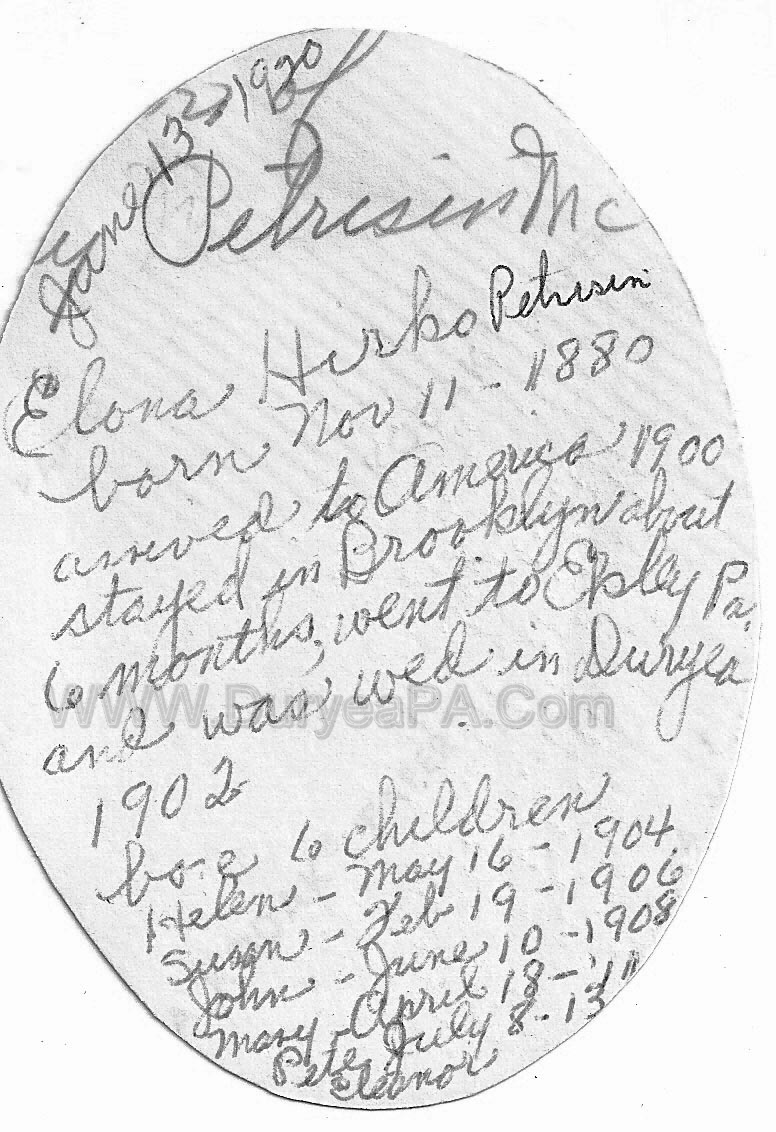 June 13, 1920
Petrisin Mc
Elona Hirko Petrisin
born Nov 11 - 1880
arrived to America 1900
stayed in Brooklyn about
6 months, went to Exley Pa.
and was wed in Duryea
WWW.DuryeaPA.Com
1902
6 children
Helen - May 16 - 1904
Susan - Feb 19 - 1906
John - June 10 - 1908
Mary - April 18 - '11
Pete July 8 - 13
Eleanor